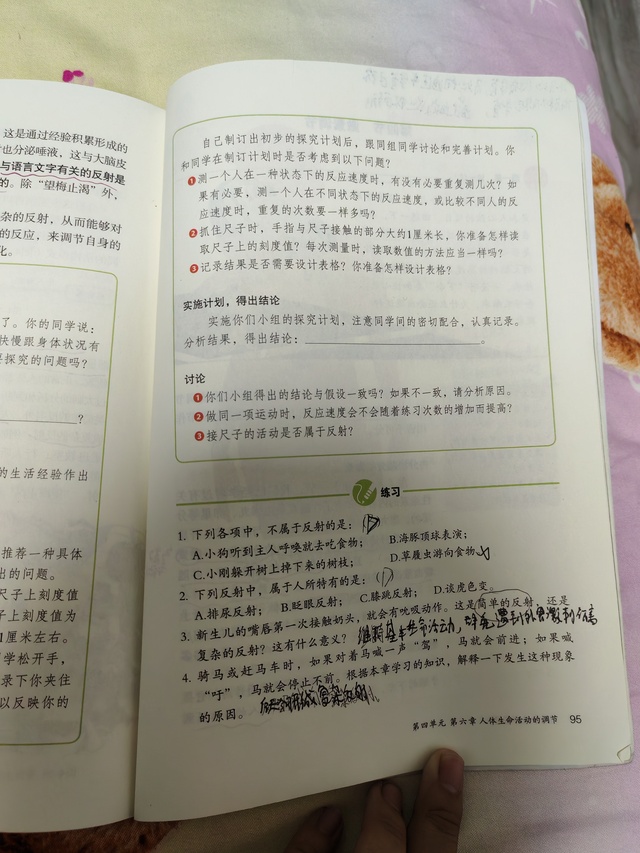 这是通过经验积累形成的
也分泌唾液，这与大脑皮
与语言文字有关的反射是
的。除“望梅止渴”外，
杂的反射，从而能够对
的反应，来调节自身的
化。
了。你的同学说：
快慢跟身体状况有
要探究的问题吗？
？
的生活经验作出
推荐一种具体
出的问题。
尺子上刻度值
子上刻度值为
1厘米左右。
学松开手，
录下你夹住
以反映你的
自己制订出初步的探究计划后，跟同组同学讨论和完善计划。你
和同学在制订计划时是否考虑到以下问题？
❶测一个人在一种状态下的反应速度时，有没有必要重复测几次？如
果有必要，测一个人在不同状态下的反应速度，或比较不同人的反
应速度时，重复的次数要一样多吗？
❷抓住尺子时，手指与尺子接触的部分大约1厘米长，你准备怎样读
取尺子上的刻度值？每次测量时，读取数值的方法应当一样吗？
❸记录结果是否需要设计表格？你准备怎样设计表格？
实施计划，得出结论
实施你们小组的探究计划，注意同学间的密切配合，认真记录。
分析结果，得出结论：。
讨论
❶你们小组得出的结论与假设一致吗？如果不一致，请分析原因。
❷做同一项运动时，反应速度会不会随着练习次数的增加而提高？
❸接尺子的活动是否属于反射？
练习
1. 下列各项中，不属于反射的是：（D
A.小狗听到主人呼唤就去吃食物； B.海豚顶球表演；
C.小刚躲开树上掉下来的树枝； D.草履虫游向食物
2. 下列反射中，属于人所特有的是：（D）
A.排尿反射； B.眨眼反射； C.膝跳反射； D.谈虎色变。
3. 新生儿的嘴唇第一次接触奶头，就会有吮吸动作。这是简单的反射，还是
复杂的反射？这有什么意义？
4. 骑马或赶马车时，如果对着马喊一声“驾”，马就会前进；如果喊
“吁”，马就会停止不前。根据本章学习的知识，解释一下发生这种现象
的原因。
第四单元 第六章 人体生命活动的调节 95